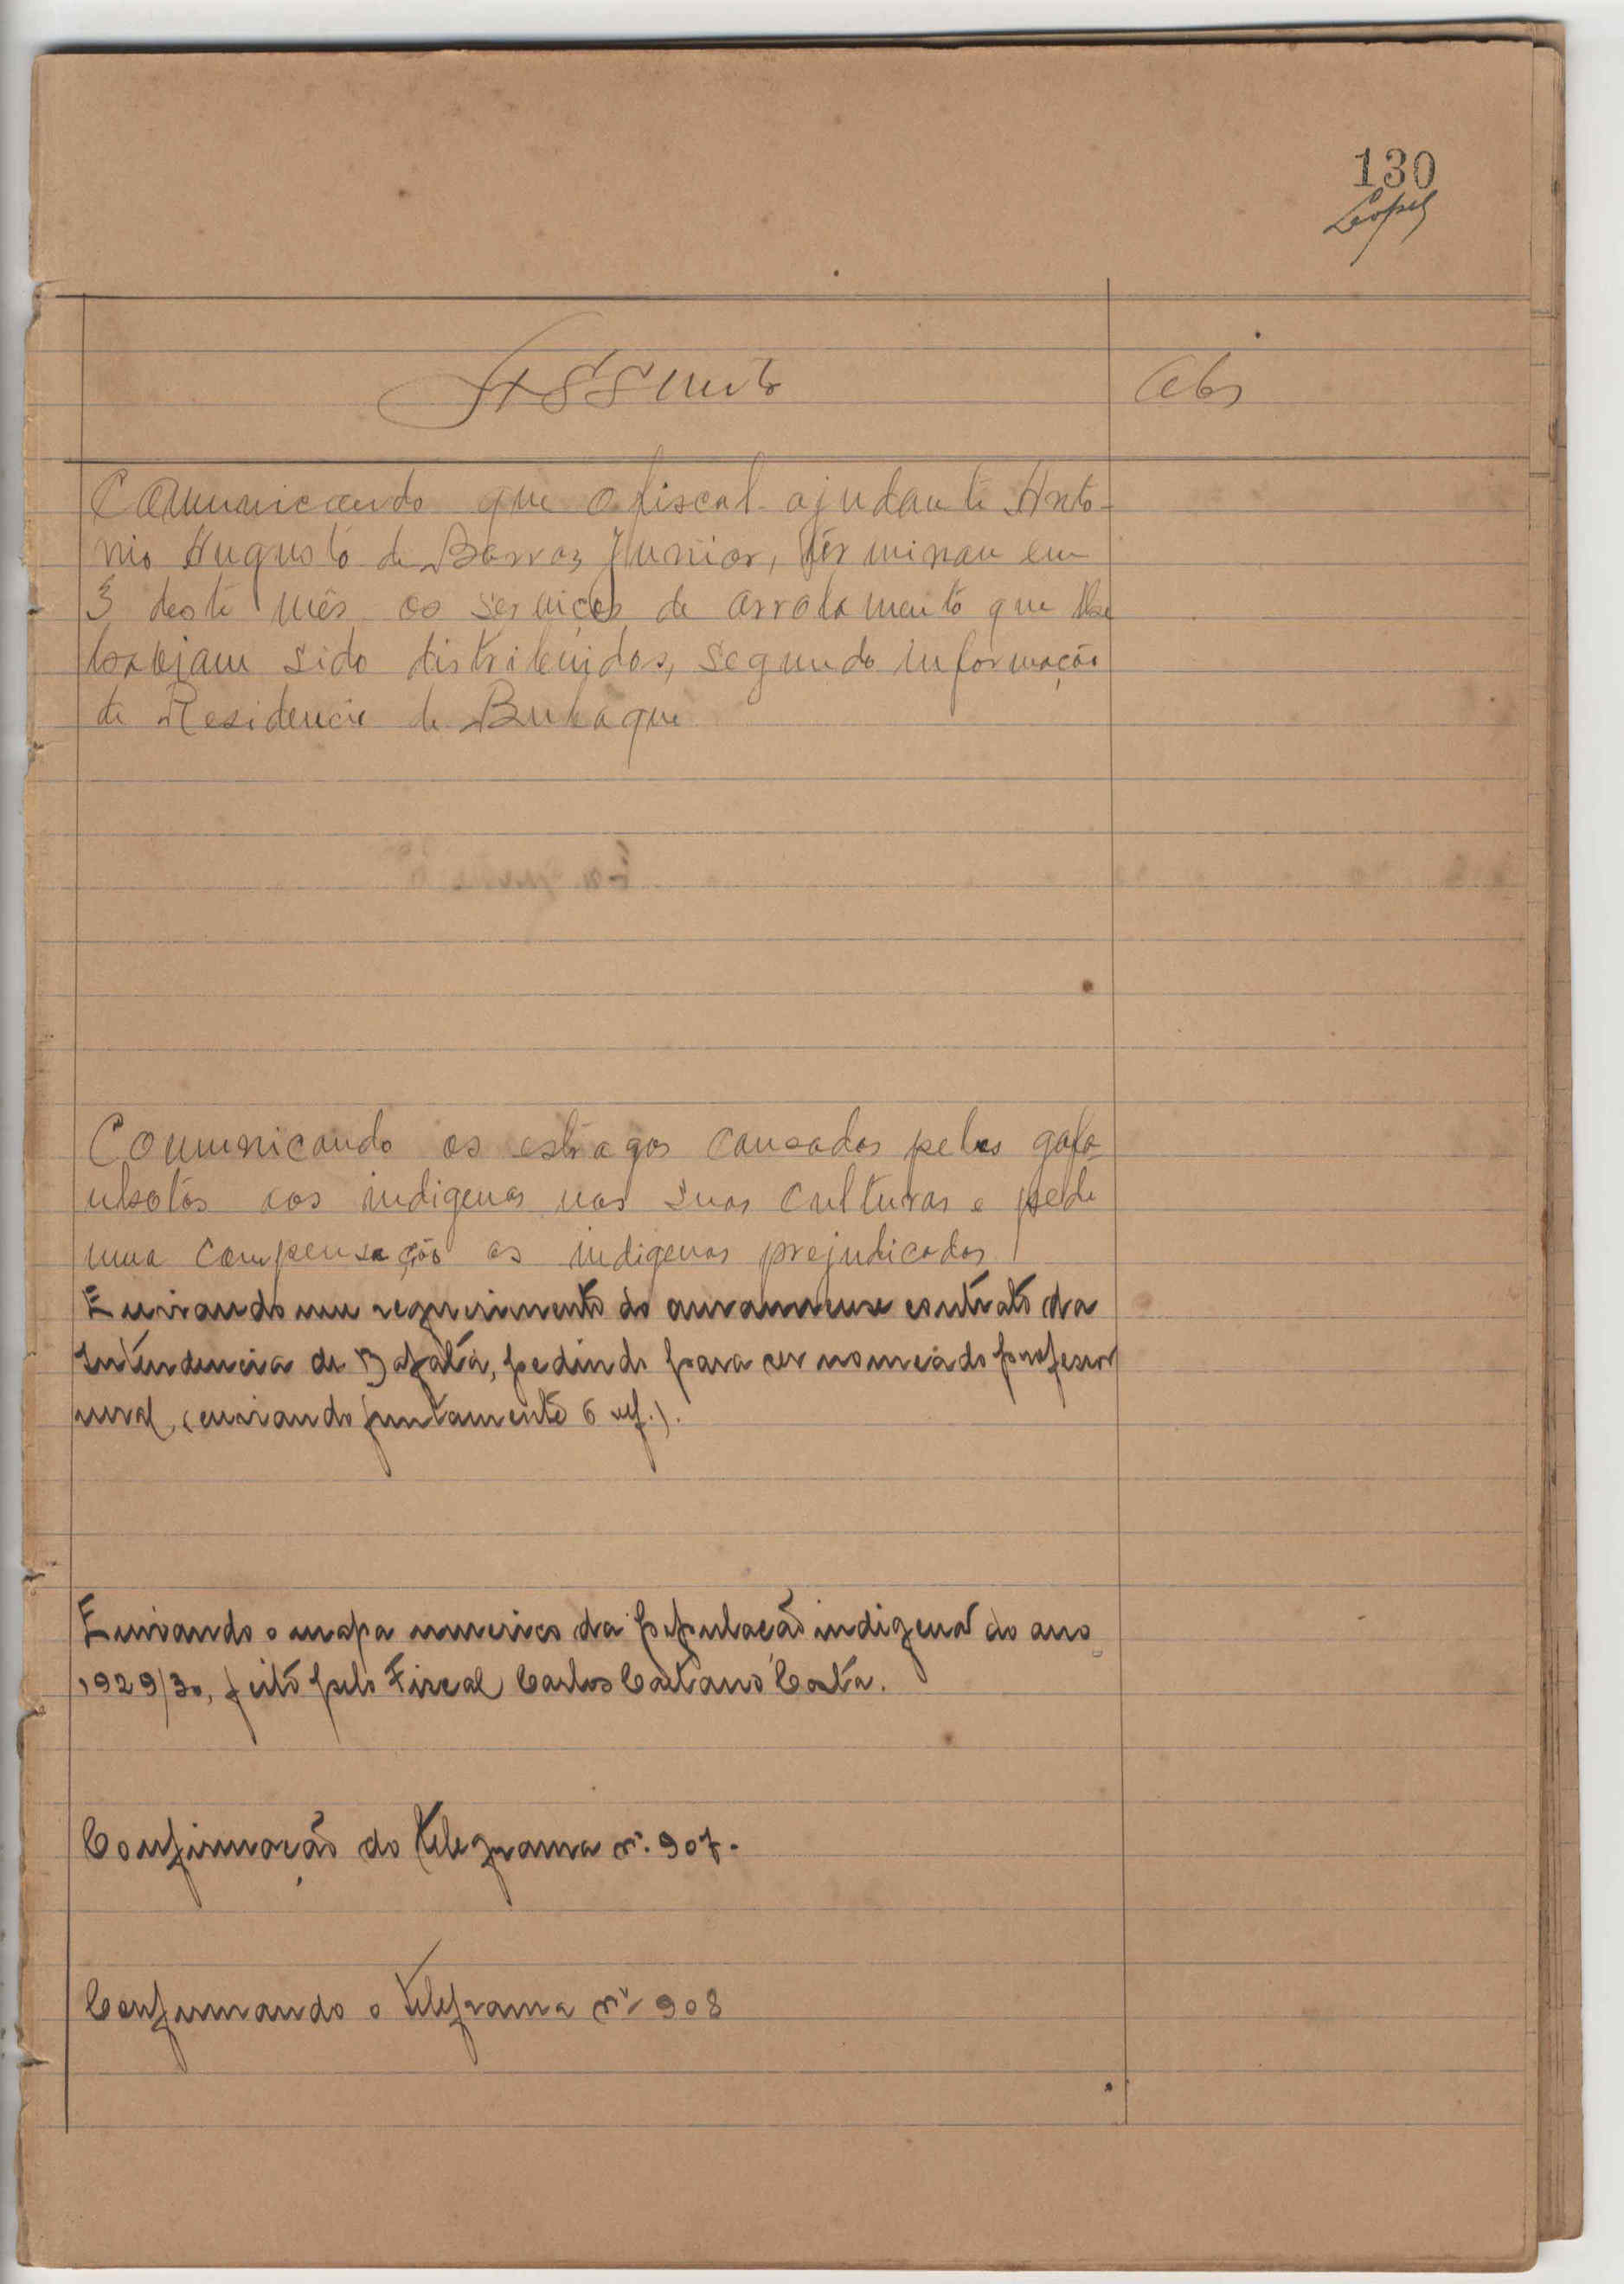 130
Lopes
Assunto
Obs
Comunicando que o fiscal ajudante Anto-
nio Augusto de Barros Junior, terminou em
3 deste mês os serviços de arrolamento que lhe
haviam sido distribuidos, segundo informação
da Residencia de Bubaque
Comunicando os estragos causados pelos gafa-
nhotos aos indigenas nas suas culturas e pede
uma compensação os indigenas prejudicados
Enviando um requerimento do amanuense contratado da
Intendencia de Bafatá, pedindo para ser nomeado professor
rural, (enviando juntamente 6 ref.).
Enviando o mapa numerico da população indigena do ano
1929/30, feito pelo Fiscal Carlos Caetano Costa.
Confirmação do telegrama nº. 907.
Confirmando o telegrama nº 908